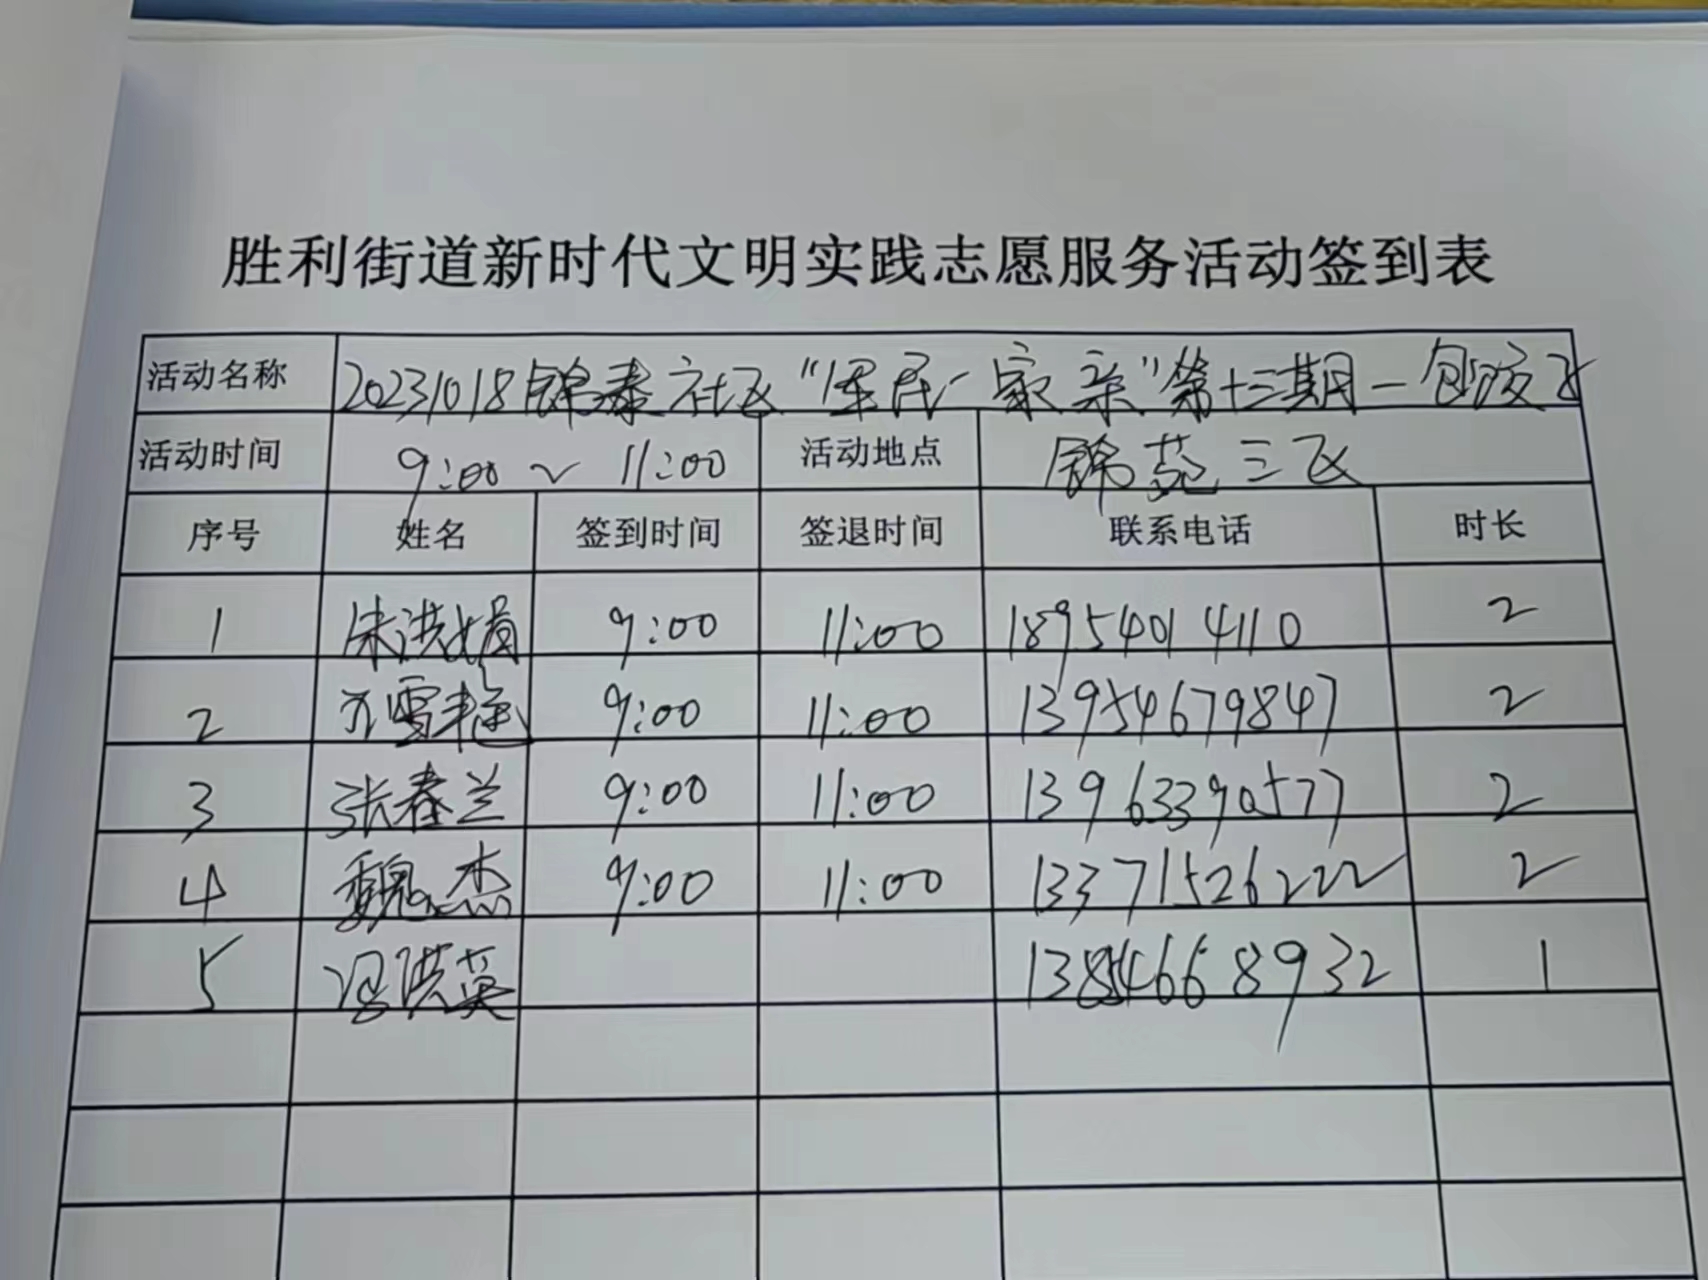 胜利街道新时代文明实践志愿服务活动签到表
活动名称 20231018锦泰社区“军民一家亲”第十三期—创
活动时间 9:00~11:00 活动地点 锦苑三区
序号 姓名 签到时间 签退时间 联系电话 时长
1 朱洪娟 9:00 11:00 18954014110 2
2 雪艳 9:00 11:00 13954679847 2
3 张春兰 9:00 11:00 13963390577 2
4 魏杰 9:00 11:00 13371526222 2
5 冯洪英 13854668932 1